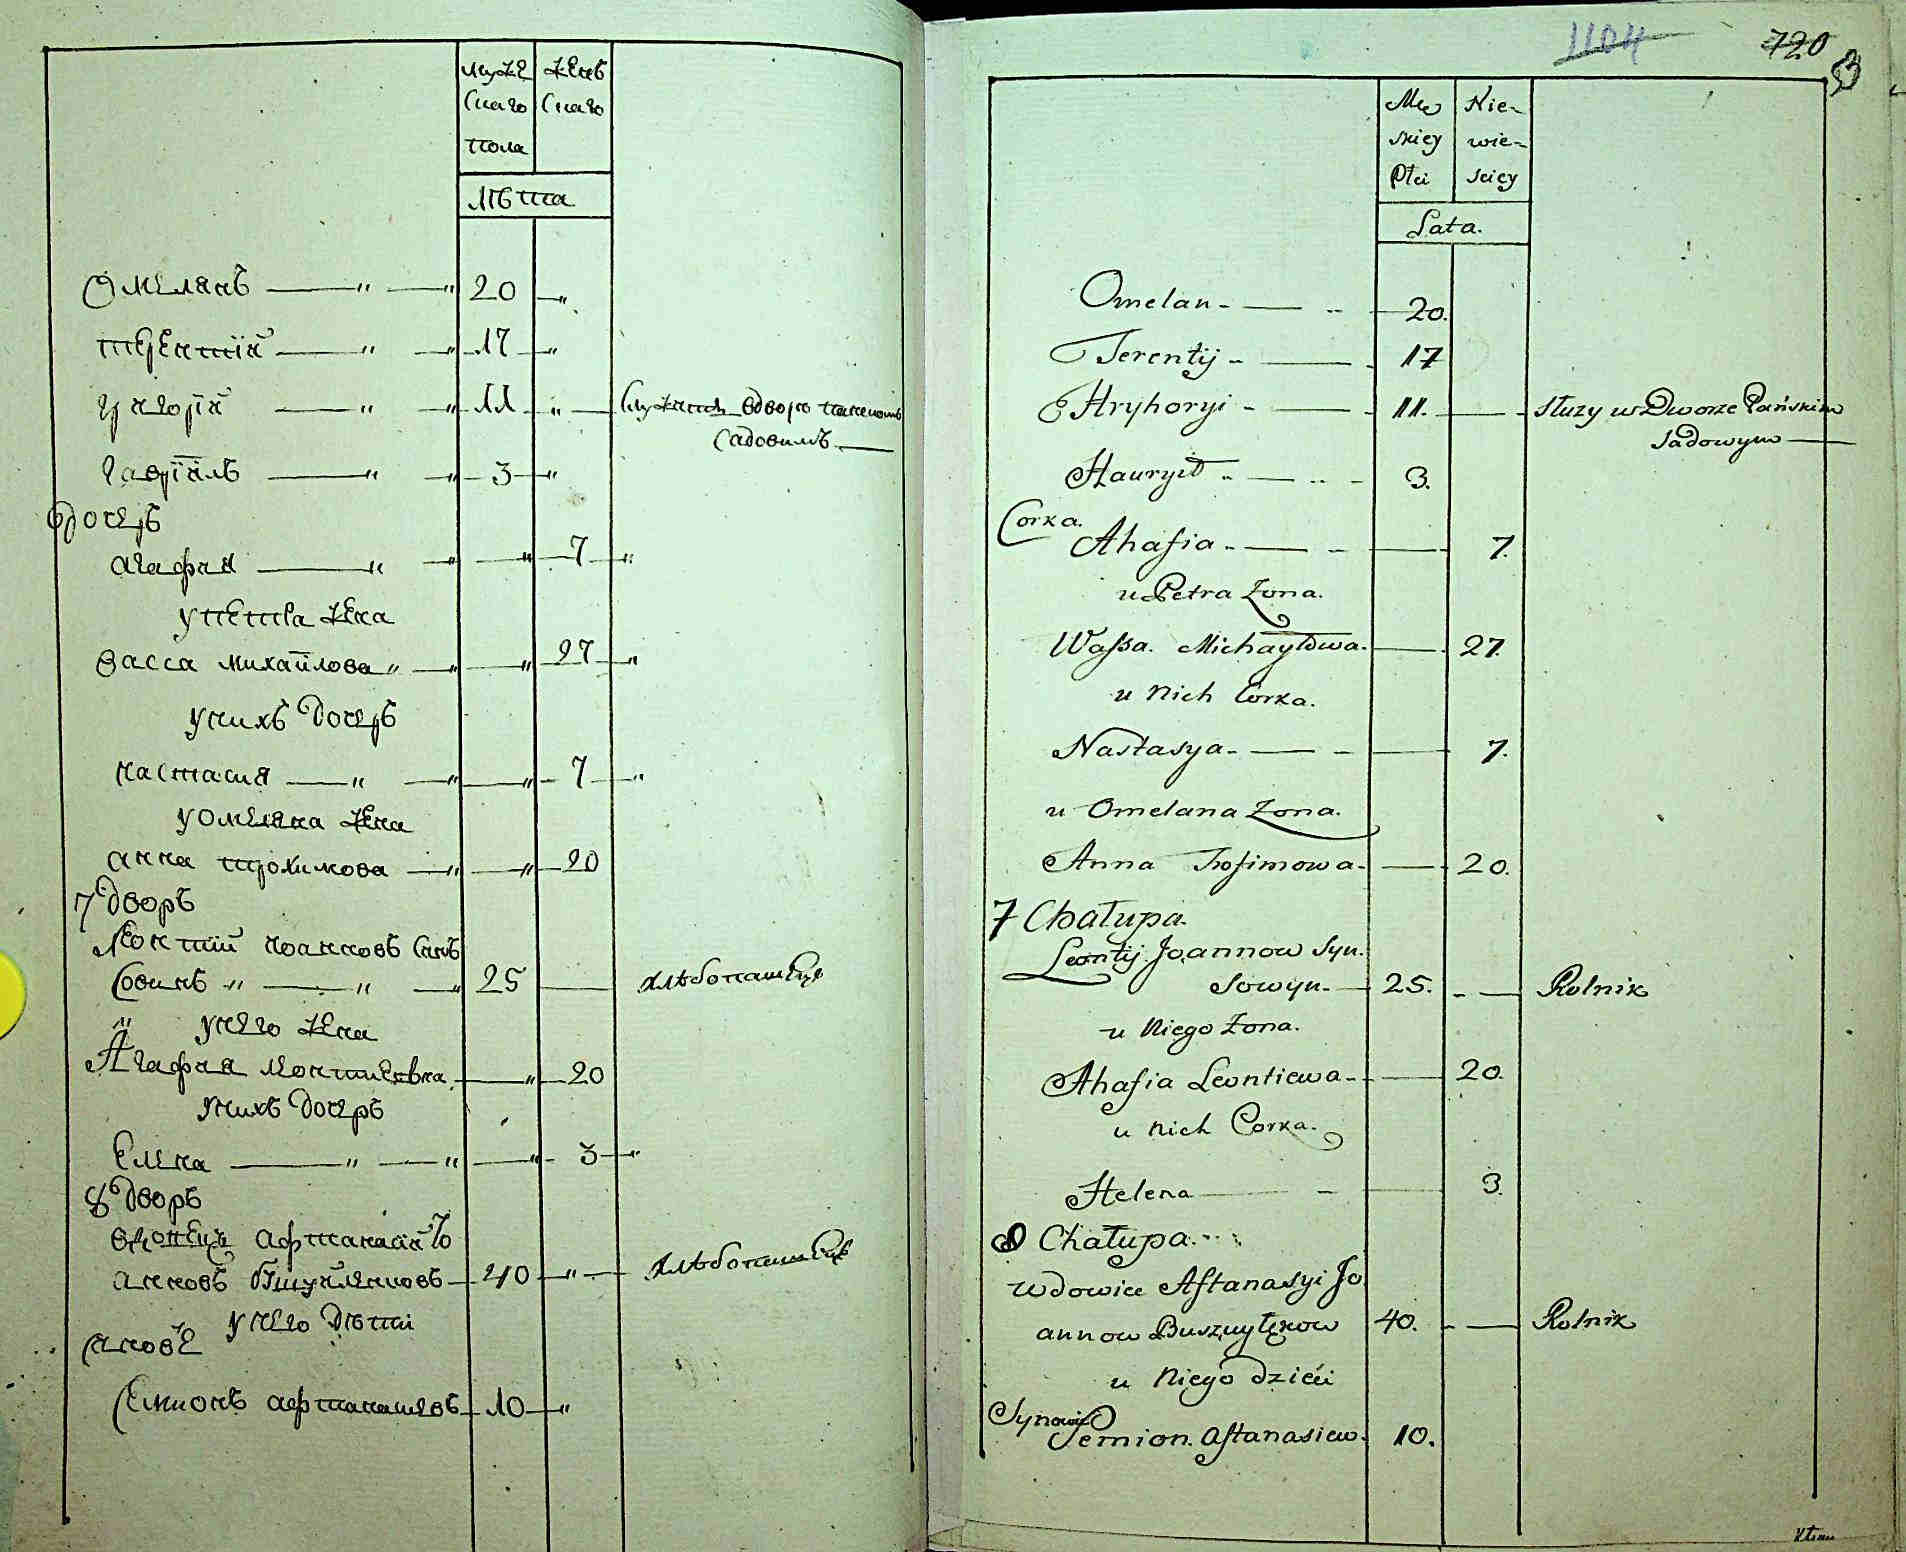 мужЕ
скаго
пола
женъ
скаго
лѣта
Омелянъ 20
терентїй 17
григорїй 11 служитъ вдворѣ панскомъ
садовимъ
гавриїлъ 3
дочерь
агафия 7
упетра жена
васса михайлова 27
унихъ дочерь
настасия 7
уомеляна жена
анна трохимова 20
7 дворъ
Леонтий иоанновъ синъ
Совинъ 25 хлѣбопашецъ
унего жена
Агафия леонтиевна 20
унихъ дочерь
Елена 3
8 дворъ
вдовецъ афтанасий Іо
анновъ 40 хлѣбопашецъ
унего дѣти
синовЕ
Семионъ афтанасиевъ 10
1104
720
Mę
skiey
Płci
Nie-
wie-
sciey
Lata.
Omelan 20.
Terentij 17
Hryhoryi 11. służy w Dworze Pańskim
Sadowym
Hauryił 3.
Corka.
Ahafia 7.
u Petra Zona.
Wassa. Michayłowa. 27.
u nich Corka.
Nastasya 7.
u Omelana Zona.
Anna Trofimowa 20.
7 Chałupa.
Leontij Joannow Syn.
Sowyn. 25. Rolnik
u Niego Zona.
Ahafia Leontiewa 20.
u nich Corka.
Helena 3.
8 Chałupa.
wdowiec Aftanasyi Jo
annow Buszuylęnow 40. Rolnik
u Niego dzieci
Synowie
Semion. Aftanasiew. 10.